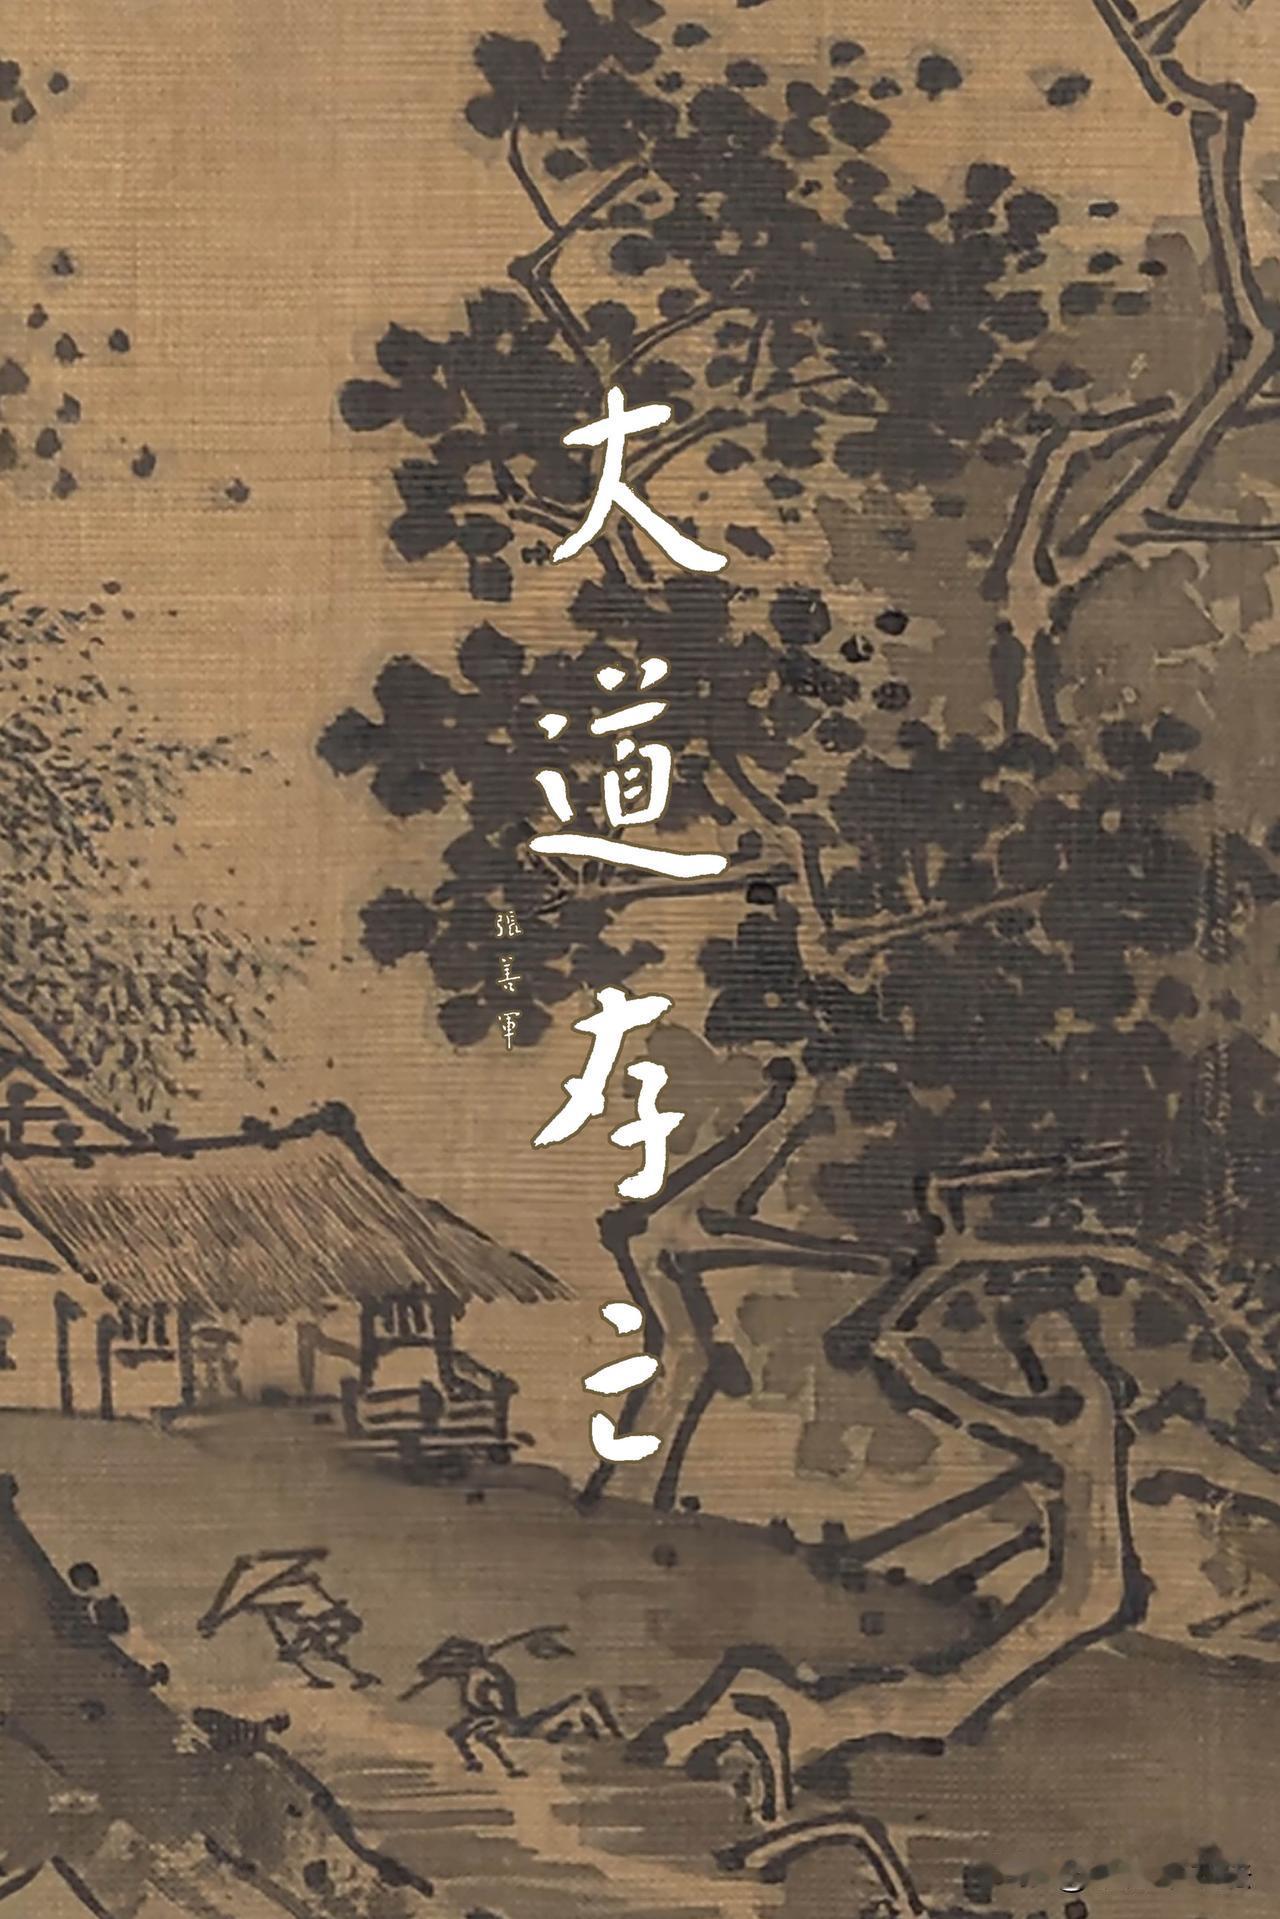 大道存亡
張善軍